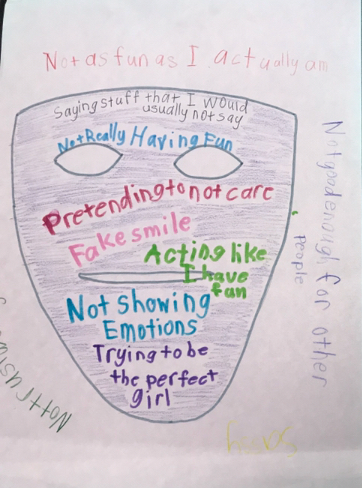 Not as fun as I actually am
Saying stuff that I would
usually not say
Not Really Having Fun
Pretending to not care
Fake smile
Acting like
I have
fun
Not Showing
Emotions
Trying to be
the perfect
girl
Not good enough for other
People
Not